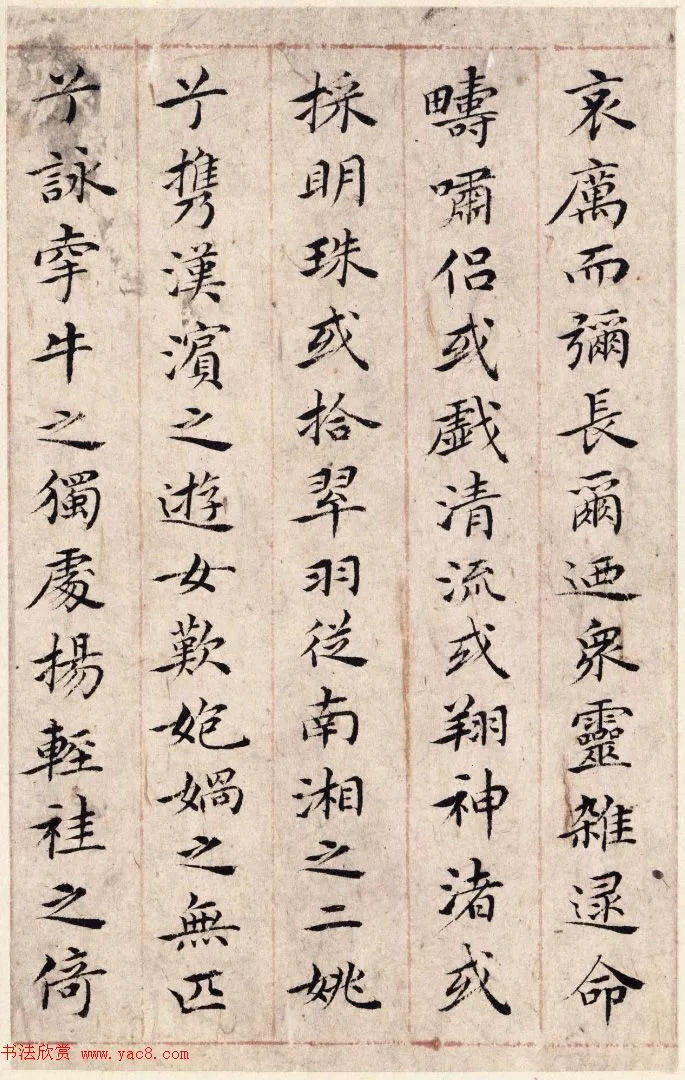 哀厲而彌長爾迺衆靈雜遝命
疇嘯侶或戲清流或翔神渚或
採明珠或拾翠羽從南湘之二姚
兮携漢濱之遊女歎媧之無匹
兮詠牽牛之獨處揚輕袿之倚
书法欣赏 www.yac8.com